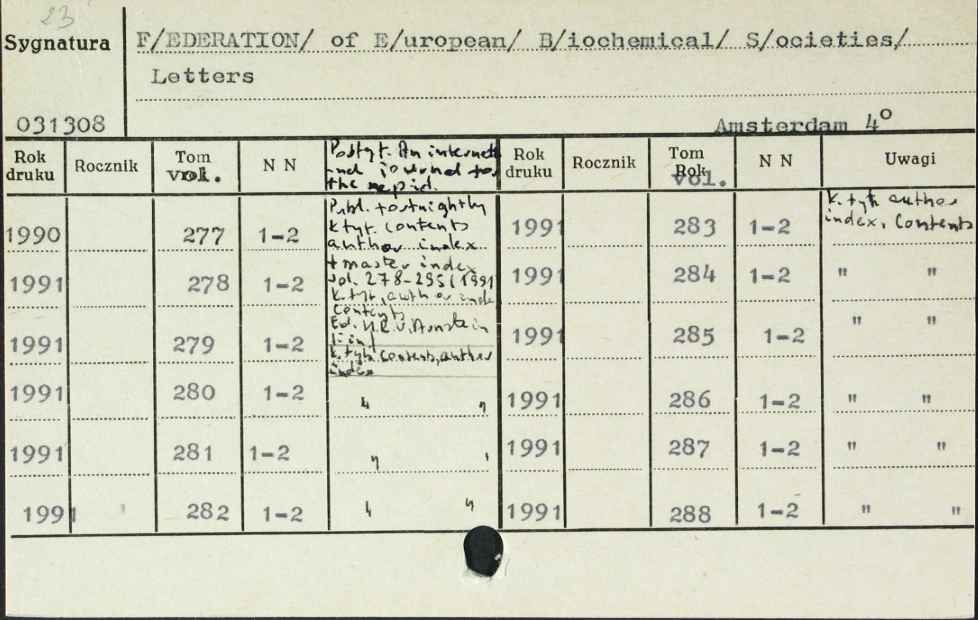 23
Sygnatura
F/EDERATION/ of E/uropean/ B/iochemical/ S/ocieties/
Letters
031308
Amsterdam 4°
Rok druku Rocznik Tom vol. N N Podtyt. An internat
and journal for
the rapid.
Rok druku Rocznik Tom Rok vol. N N Uwagi
1990 277 1-2 Publ. fortnightly
k. tyt. contents
author index
1991 283 1-2 k. tyt. author
index, contents
1991 278 1-2 + master index
vol. 278-295(1991
k. tyt., author inde
contents
1991 284 1-2 " "
1991 279 1-2 Ed. H.R.V. Arnstein
k. tyt. contents, author
index
1991 285 1-2 " "
1991 280 1-2 " "
1991 286 1-2 " "
1991 281 1-2 " "
1991 287 1-2 " "
1991 282 1-2 " "
1991 288 1-2 " "